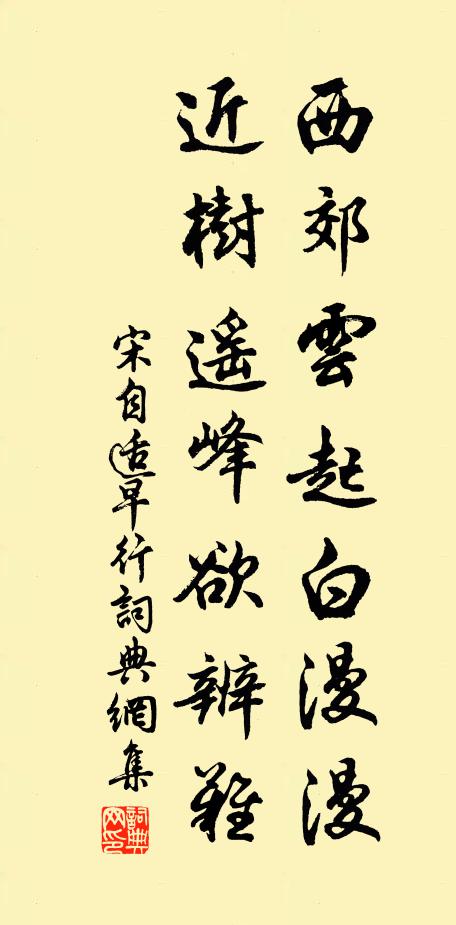 西郊雲起白漫漫
近樹遥峰欲辨難
宋自逺早行詞典網集
詞典网印